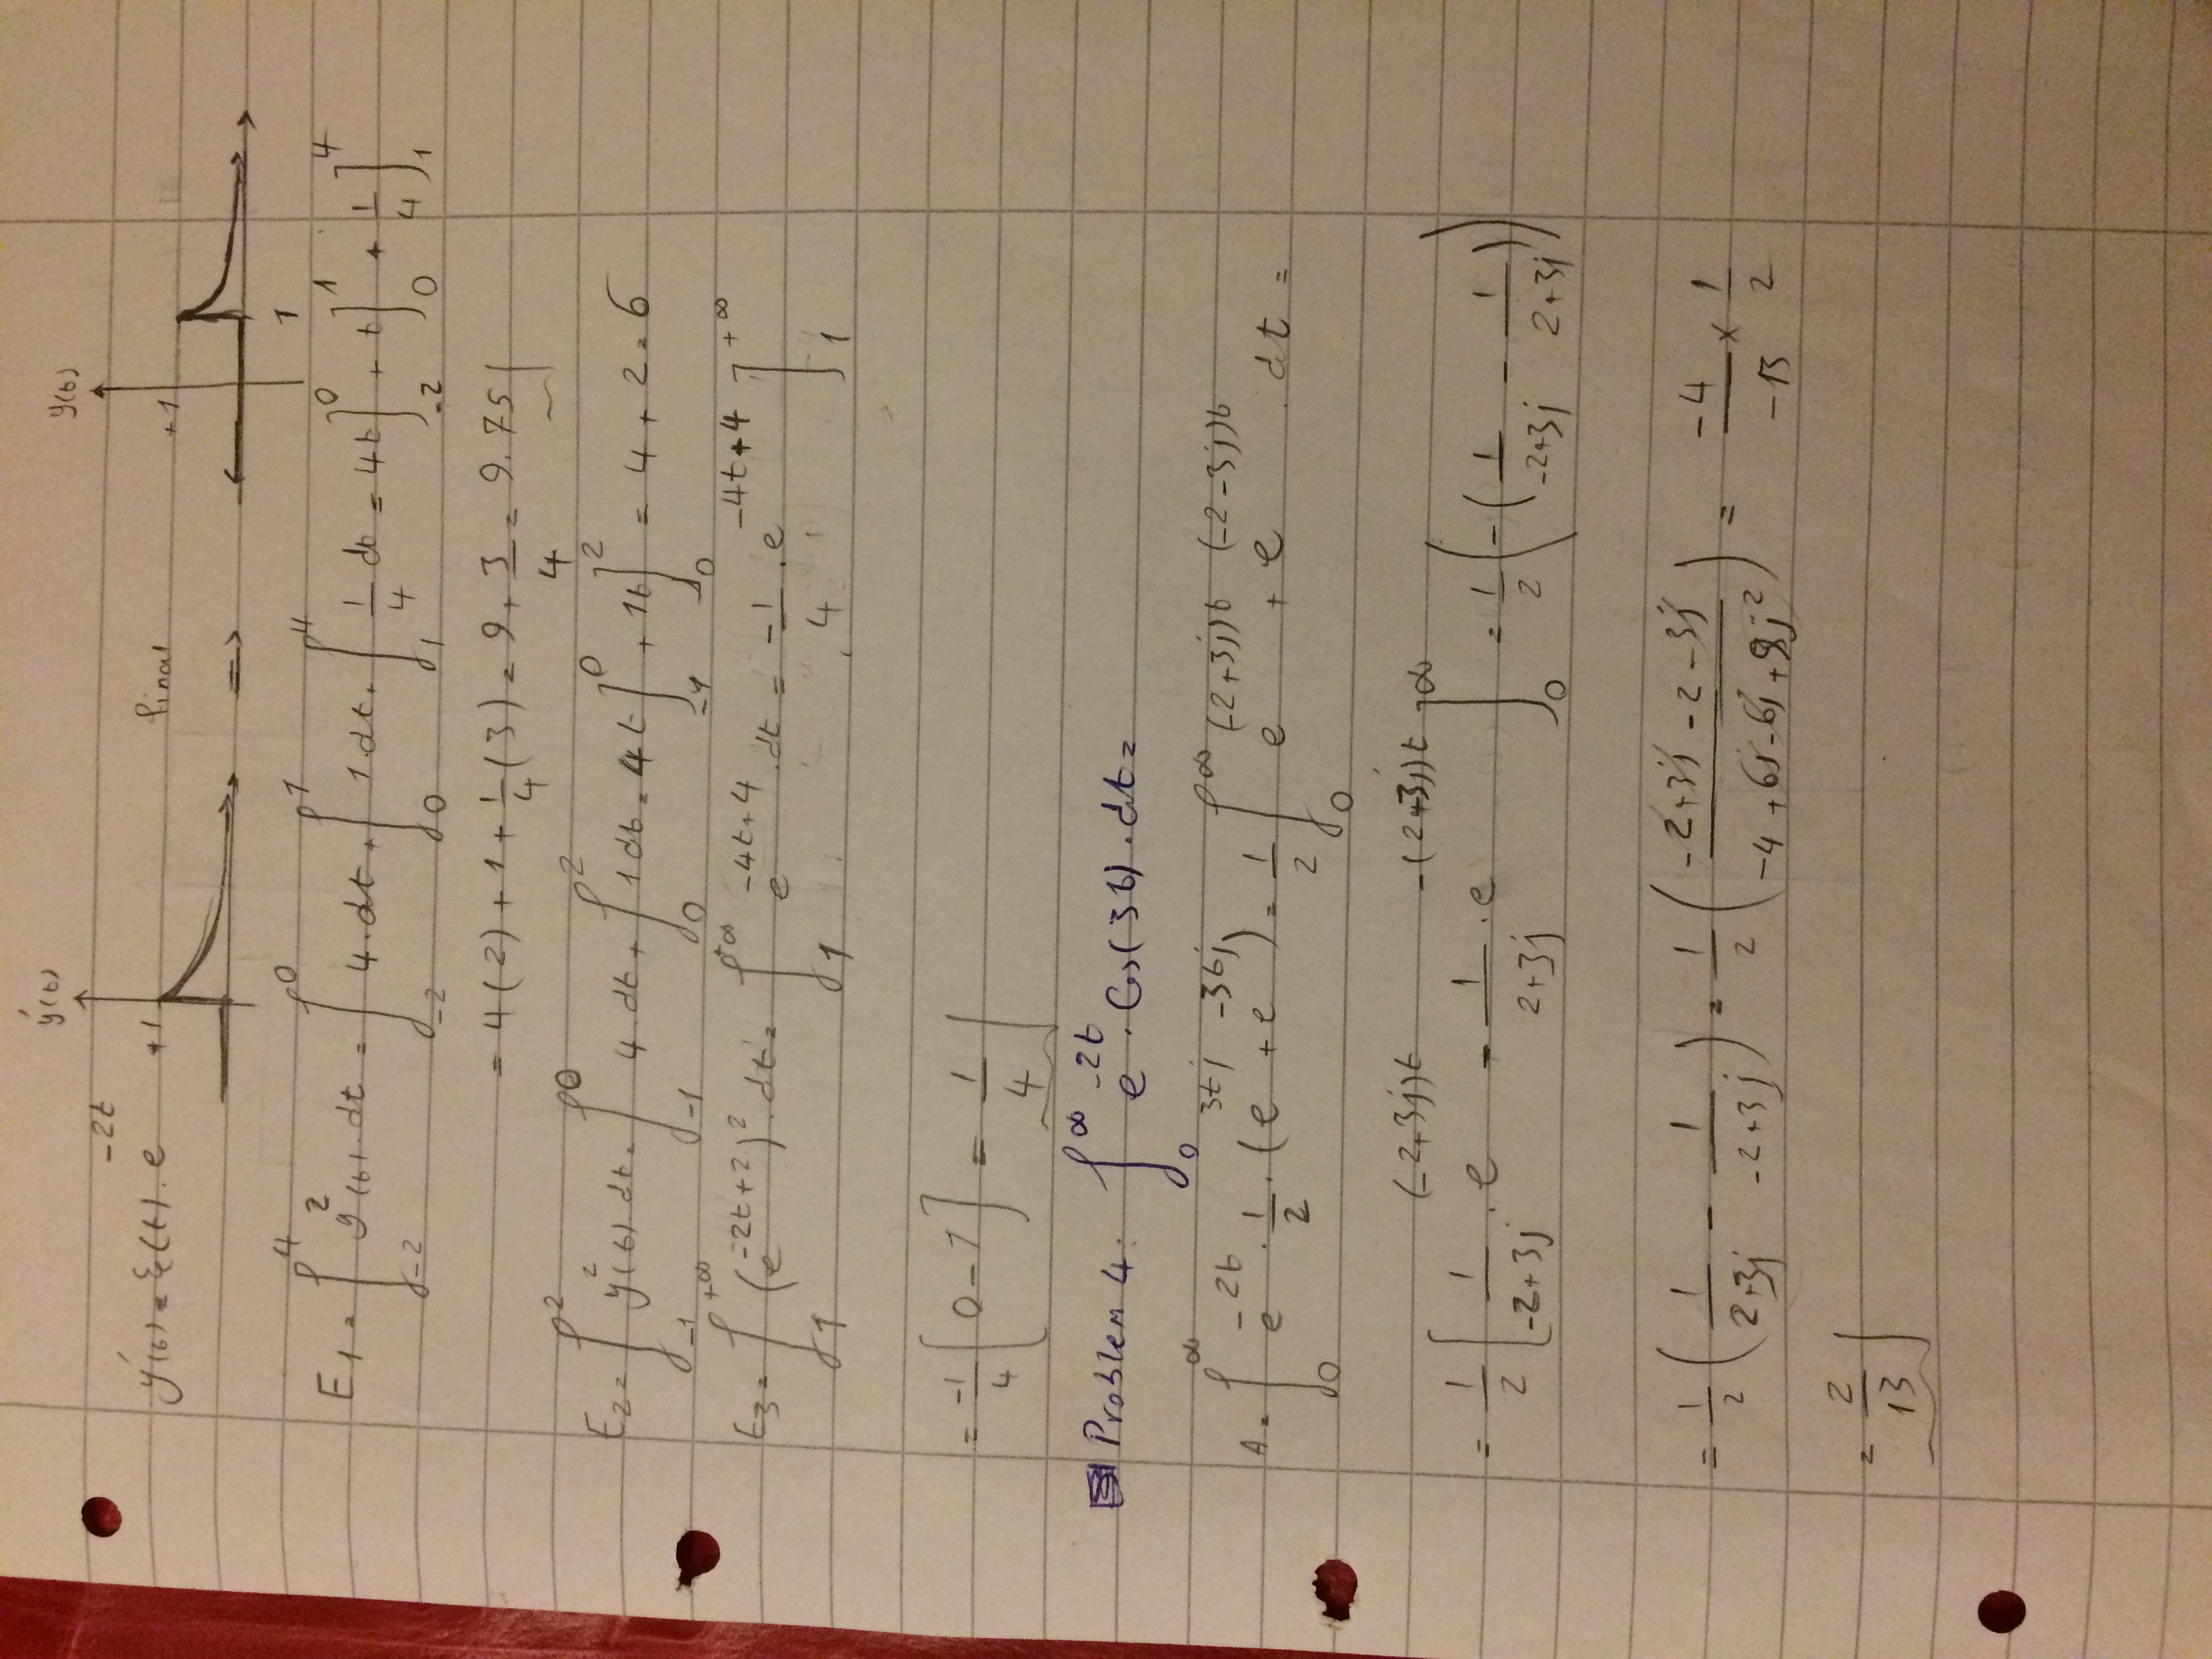 ý(t) y(t)
ý(t) = ξ(t) · e^{-2t} +1 final +1
⇒ 1
E1 = ∫_{-2}^{4} y²(t) · dt = ∫_{-2}^{0} 4 · dt + ∫_{0}^{1} 1 · dt + ∫_{1}^{4} 1/4 dt = 4t]_{-2}^{0} + t]_{0}^{1} + 1/4]_{1}^{4}
= 4(2) + 1 + 1/4(3) = 9 + 3/4 = 9.75
E2 = ∫_{-1}^{2} y²(t) · dt = ∫_{-1}^{0} 4 · dt + ∫_{0}^{2} 1 dt = 4t]_{-1}^{0} + 1t]_{0}^{2} = 4 + 2 = 6
E3 = ∫_{1}^{+∞} (e^{-2t+2})² · dt = ∫_{1}^{+∞} e^{-4t+4} · dt = -1/4 · e^{-4t+4}]_{1}^{+∞}
= -1/4 [0 - 1] = 1/4
Problem 4: ∫_{0}^{∞} e^{-2t} · Cos(3t) · dt =
A = ∫_{0}^{∞} e^{-2t} · 1/2 · (e^{3tj} + e^{-3tj}) = 1/2 ∫_{0}^{∞} e^{(-2+3j)t} + e^{(-2-3j)t} · dt =
= 1/2 [1/(-2+3j) · e^{(-2+3j)t} - 1/(2+3j) · e^{-(2+3j)t}]_{0}^{∞} = 1/2 (-(1/(-2+3j) - 1/(2+3j)))
= 1/2 (1/(2+3j) - 1/(-2+3j)) = 1/2 ((-2+3j-2-3j)/(-4+6j-6j+9j²)) = -4/-13 × 1/2
= 2/13